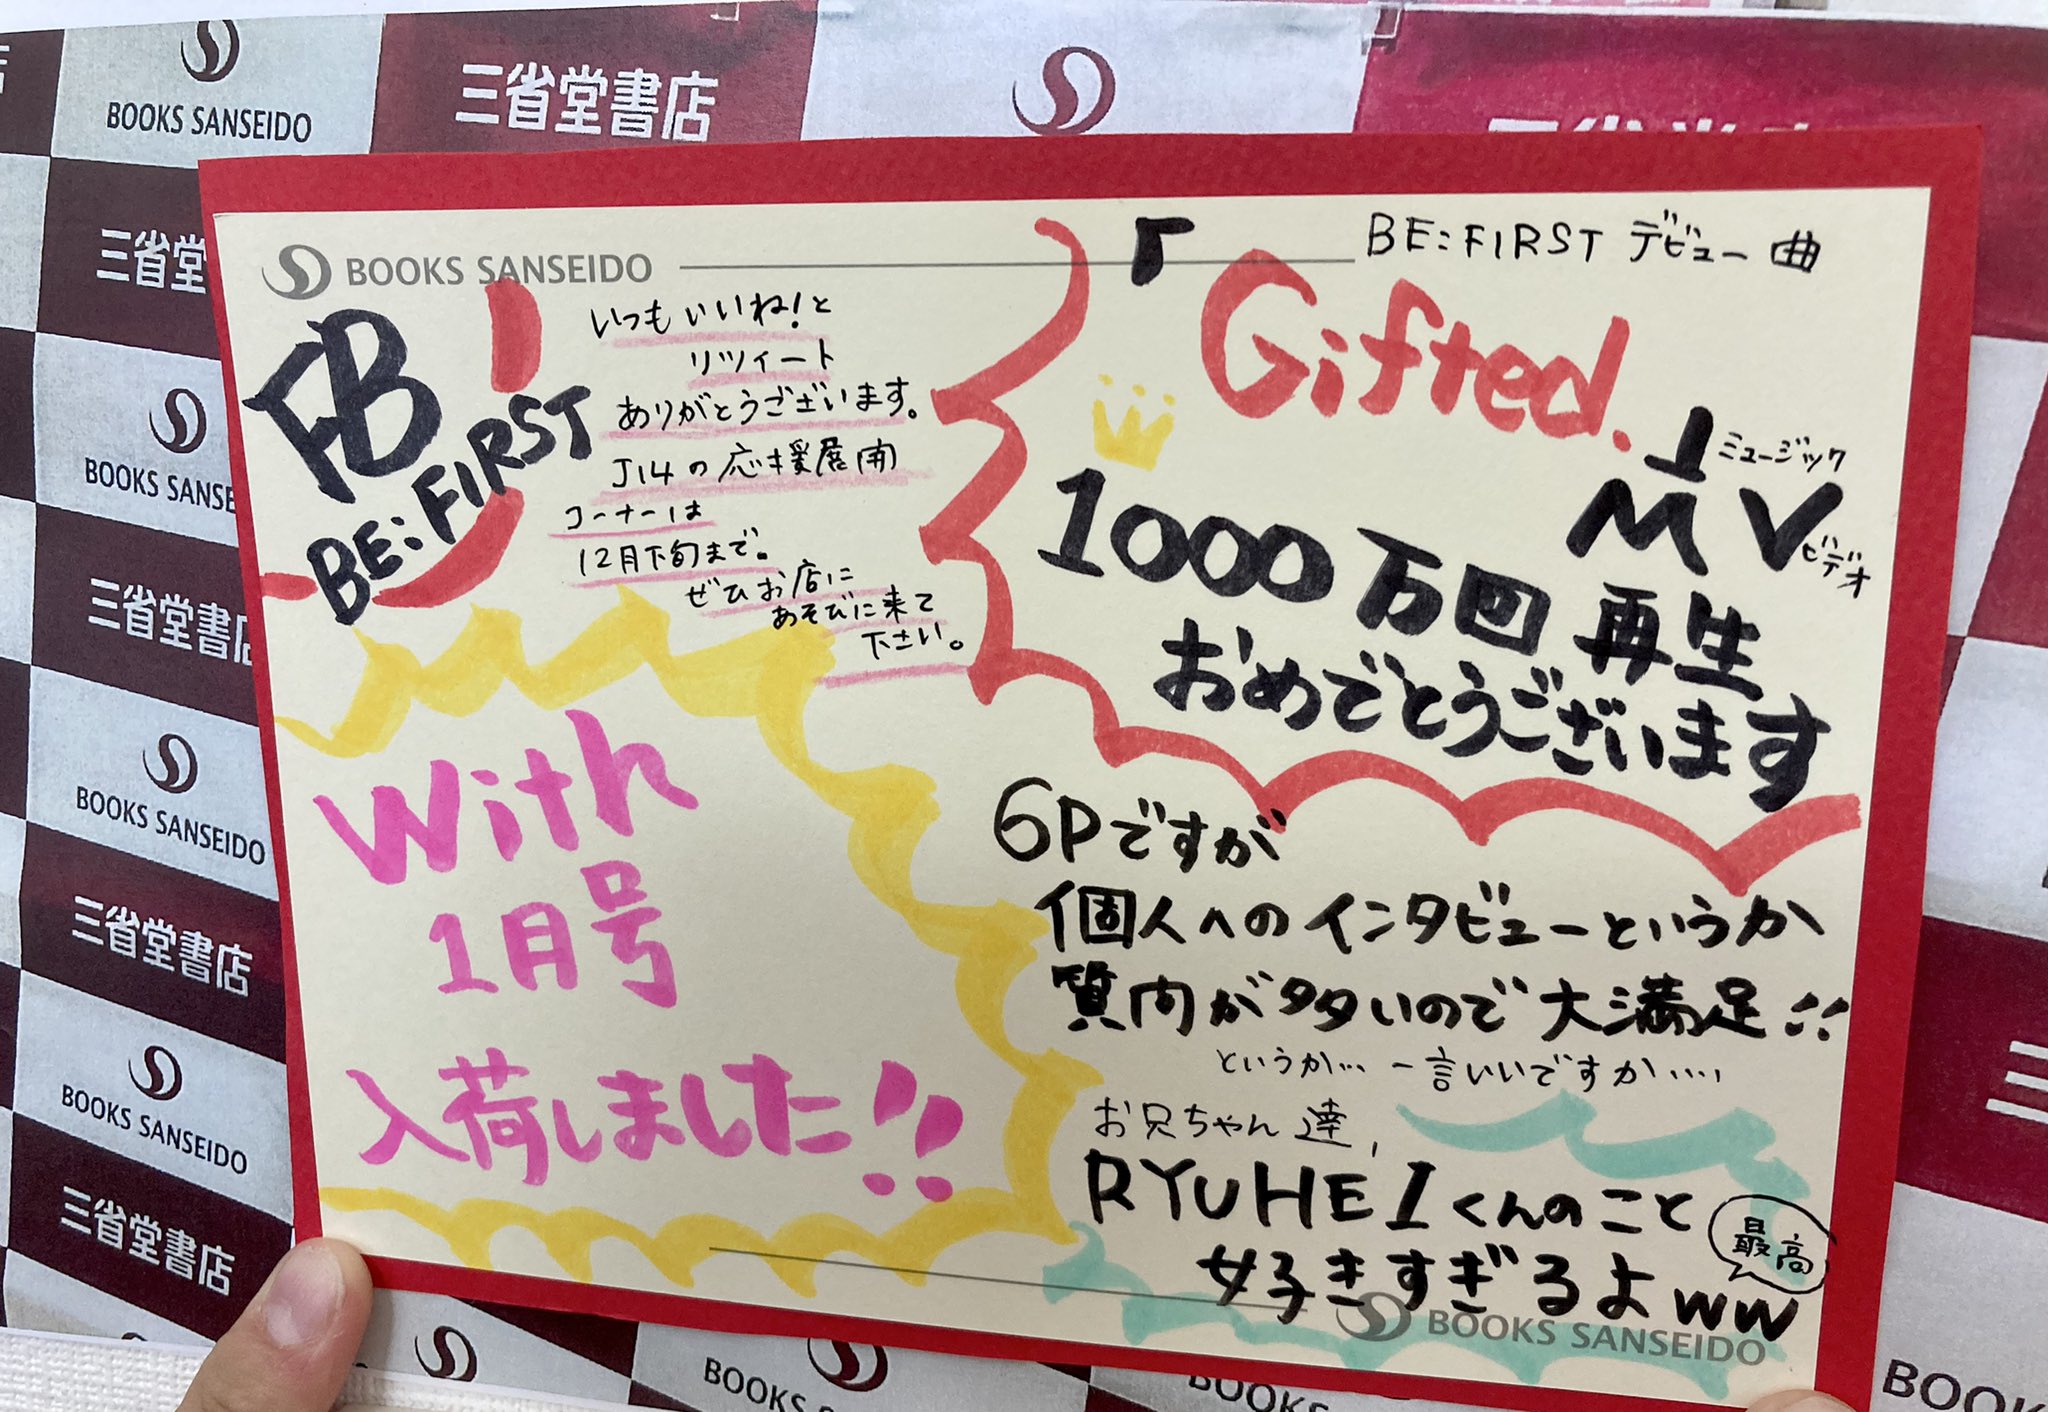 BOOKS SANSEIDO
三省堂書店
三省堂書店
BOOKS SANSEIDO
三省堂書店
BOOKS SANSEIDO
三省堂書店
BOOKS SANSEIDO
三省堂書店
BOOKS SANSEIDO
FB
BE:FIRST
いつもいいね!と
リツィート
ありがとうございます。
J14の応援展開
コーナーは
12月下旬まで。
ぜひお店に
あそびに来て
下さい。
BE:FIRST デビュー曲
「Gifted.」
MV
ミュージック
ビデオ
1000万回再生
おめでとうございます
With
1月号
入荷しました!!
6Pですが
個人へのインタビューというか
質問が多いので大満足!!
というか… 一言いいですか‥‥
お兄ちゃん達,
RYUHEIくんのこと
好きすぎるよww
最高
BOOKS SANSEIDO
BOOKS SANSEIDO